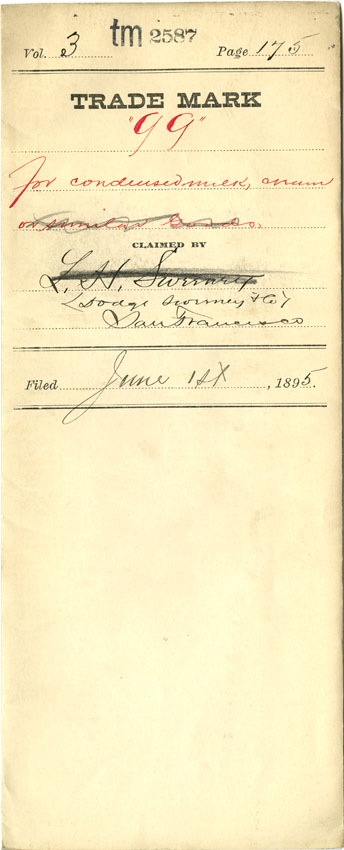 Vol. 3 tm 2587 Page 175
TRADE MARK
"99"
for condensed milk, cream
or similar Goods.
CLAIMED BY
L. H. Sweeney
Dodge Sweeney & Co
San Francisco
Filed June 1st, 1895.